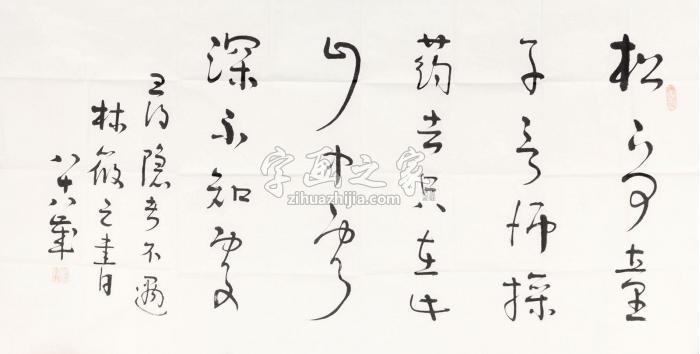 松下問童
子言師採
葯去只在此
山中雲
深不知處
隐者不遇
林筱之書
八十八歲
字画之家
zihuazhijia.com